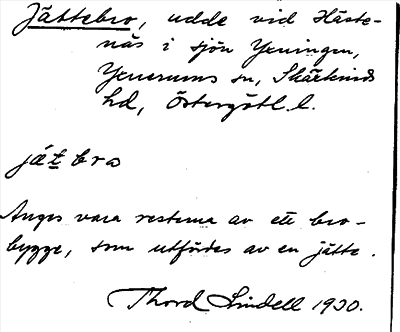 Jättebro, udde vid Häste-
näs i sjön Yxningen,
Yxnerums sn, Skärkinds
hd, Östergötl. l.
jätbro
Anges vara resterna av ett bro-
bygge, som utfördes av en jätte.
Thord Lindell 1930.